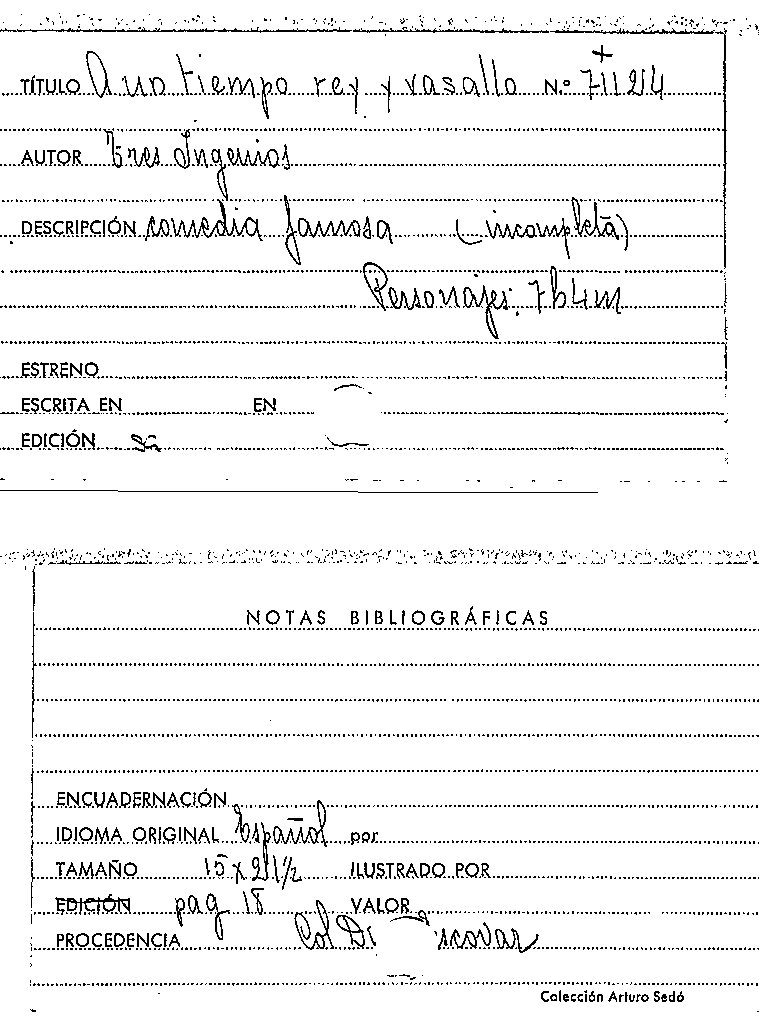 TÍTULO A un tiempo rey y vasallo N.º 71124
AUTOR Tres Ingenios
DESCRIPCIÓN comedia famosa (incompleta)
Personajes: 7h4m
ESTRENO
ESCRITA EN EN
EDICIÓN
NOTAS BIBLIOGRÁFICAS
ENCUADERNACIÓN
IDIOMA ORIGINAL Español por
TAMAÑO 15 x 21 1/2 ILUSTRADO POR
EDICIÓN pag 18 VALOR
PROCEDENCIA Col
Colección Arturo Sedó